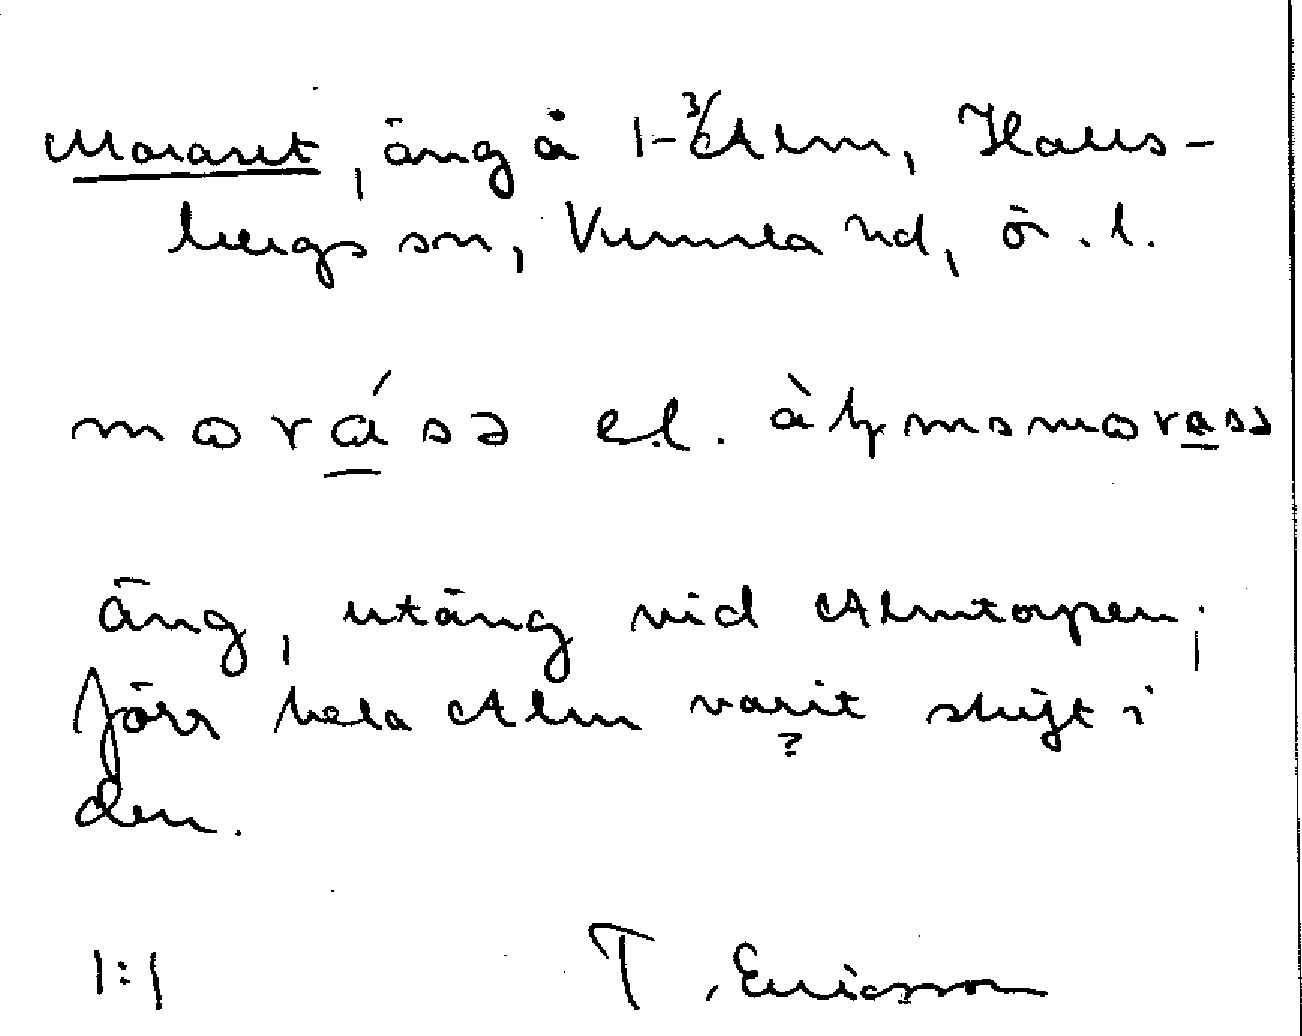 Moraset, äng å 1-3/Alm, Halls-
bergs sn, Kumla hd, ö. l.
mωrásə el. àɽmsmωrasə
äng, utäng vid Almtorpen;
förr hela Alm varit skift i
?
den.
1:1 T. Ericsson